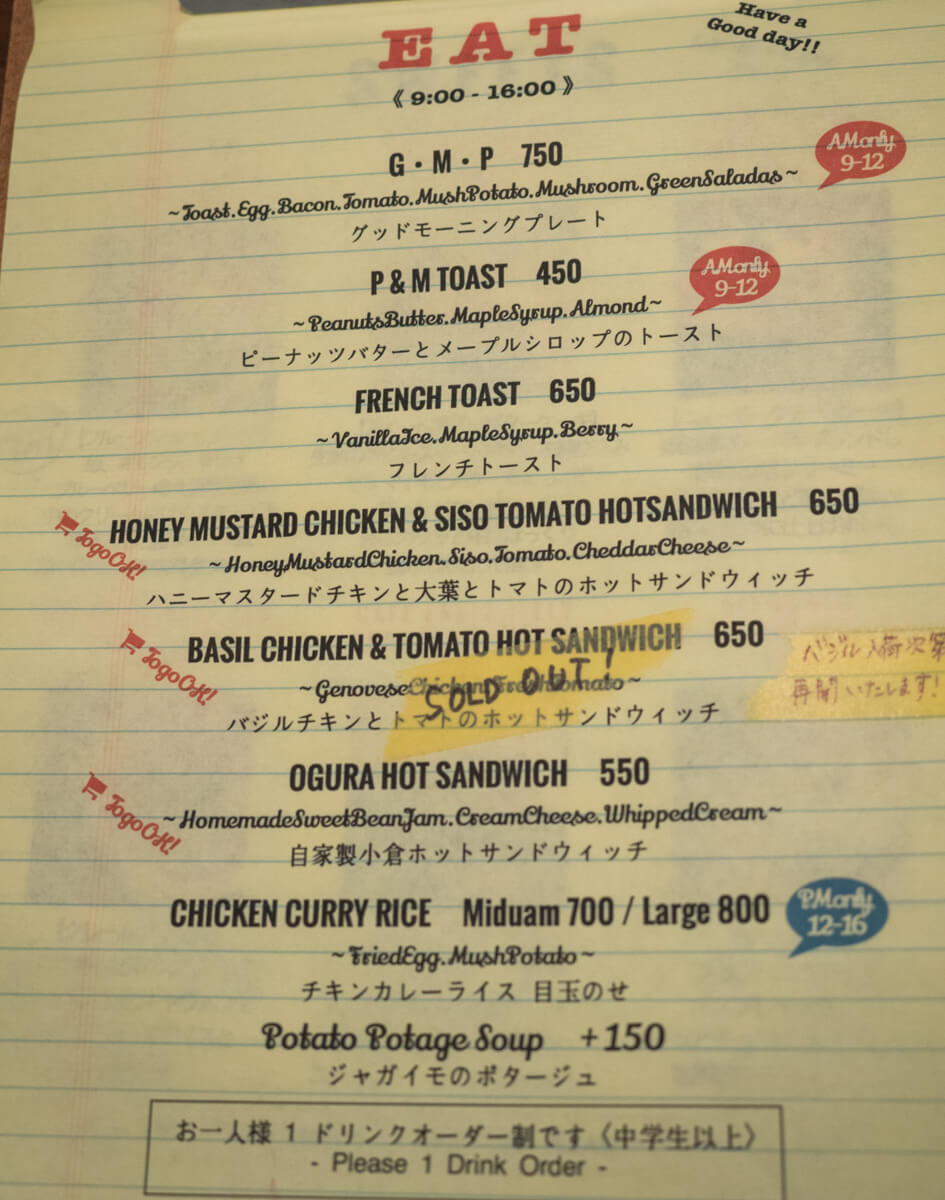 Have a
Good day!!
EAT
《 9:00 - 16:00 》
G・M・P 750
AM only
9-12
~Toast.Egg.Bacon.Tomato.MushPotato.Mushroom.GreenSaladas~
グッドモーニングプレート
P & M TOAST 450
AM only
9-12
~PeanutsButter.MapleSyrup.Almond~
ピーナッツバターとメープルシロップのトースト
FRENCH TOAST 650
~VanillaIce.MapleSyrup.Berry~
フレンチトースト
HONEY MUSTARD CHICKEN & SISO TOMATO HOTSANDWICH 650
Togo OK!
~HoneyMustardChicken.Siso.Tomato.CheddarCheese~
ハニーマスタードチキンと大葉とトマトのホットサンドウィッチ
BASIL CHICKEN & TOMATO HOT SANDWICH 650
Togo OK!
~GenoveseChicken.FreshTomato~
SOLD OUT!
バジル入荷次第
再開いたします!
バジルチキンとトマトのホットサンドウィッチ
OGURA HOT SANDWICH 550
Togo OK!
~HomemadeSweetBeanJam.CreamCheese.WhippedCream~
自家製小倉ホットサンドウィッチ
CHICKEN CURRY RICE Miduam 700 / Large 800
PM only
12-16
~FriedEgg.MushPotato~
チキンカレーライス 目玉のせ
Potato Potage Soup +150
ジャガイモのポタージュ
お一人様 1 ドリンクオーダー制です〈中学生以上〉
- Please 1 Drink Order -